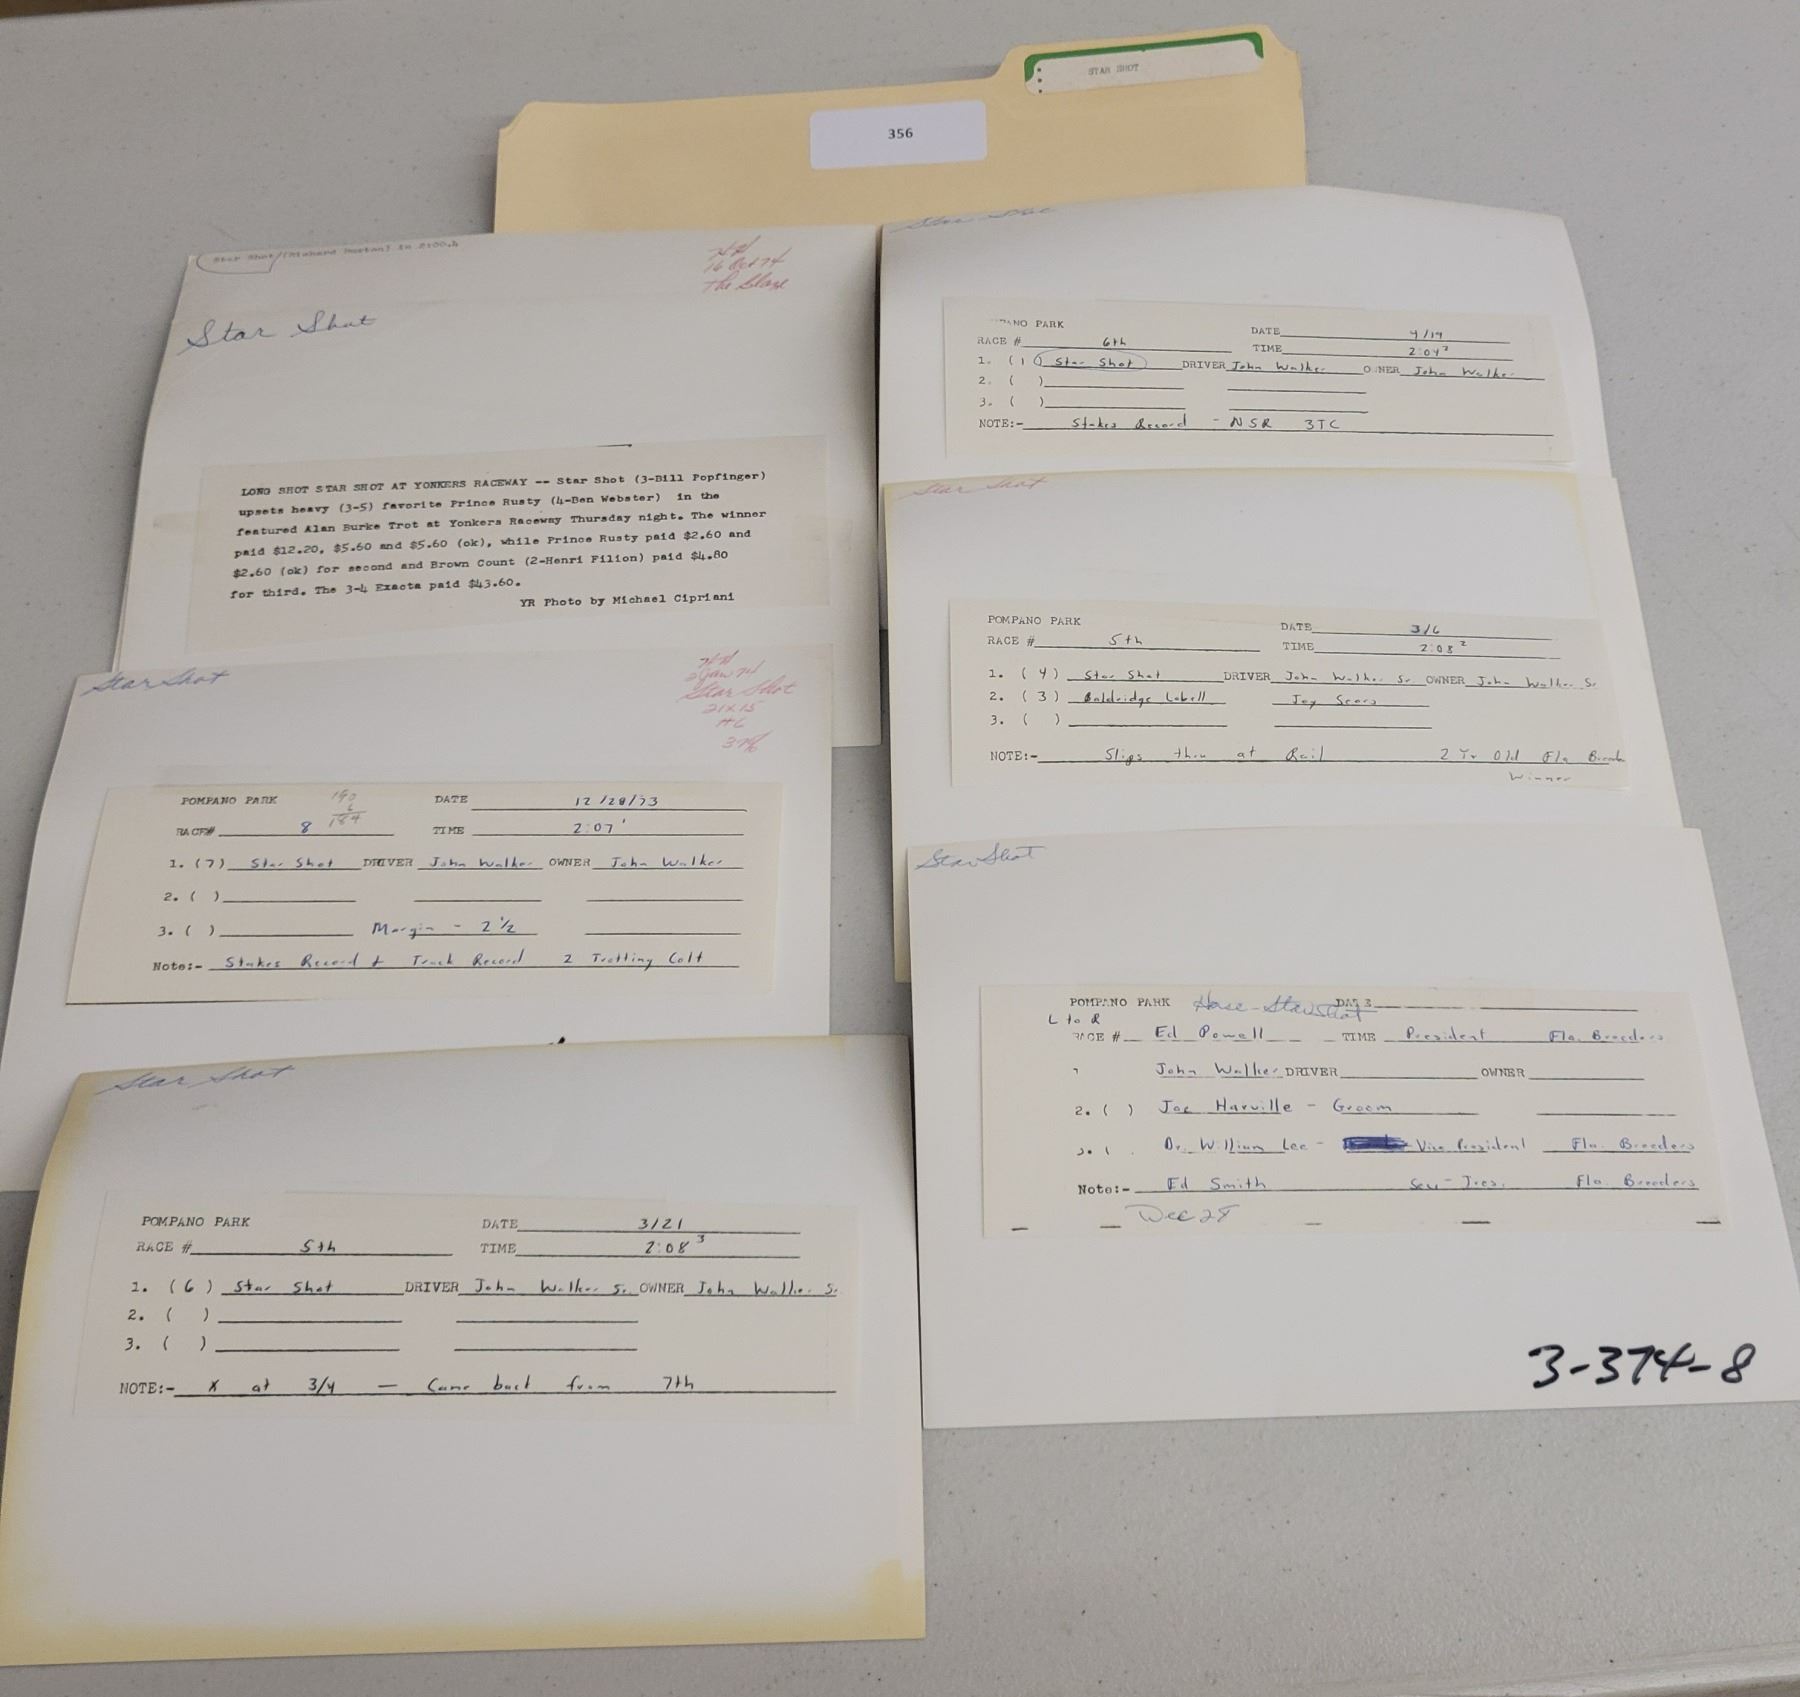 STAR SHOT
356
Star Shot/(Richard Horton) in 2:00.4
16 Oct 74
The Blaze
Star Shot
LONG SHOT STAR SHOT AT YONKERS RACEWAY -- Star Shot (3-Bill Popfinger)
upsets heavy (3-5) favorite Prince Rusty (4-Ben Webster) in the
featured Alan Burke Trot at Yonkers Raceway Thursday night. The winner
paid $12.20, $5.60 and $5.60 (ok), while Prince Rusty paid $2.60 and
$2.60 (ok) for second and Brown Count (2-Henri Filion) paid $4.80
for third. The 3-4 Exacta paid $43.60.
YR Photo by Michael Cipriani
Star Shot
Star Shot
21x15
POMPANO PARK DATE 12/28/73
190
6
184
RACE# 8 TIME 2:07'
1. (7) Star Shot DRIVER John Walker OWNER John Walker
2. ( )
3. ( ) Margin - 2 1/2
Note:- Stakes Record + Track Record 2 Trotting Colt
Star Shot
POMPANO PARK DATE 3/21
RACE # 5th TIME 2:08 3
1. (6) Star Shot DRIVER John Walker Sr OWNER John Walker Sr
2. ( )
3. ( )
NOTE:- X at 3/4 — Came back from 7th
Star Shot
PANO PARK DATE 4/19
RACE # 6th TIME 2:04²
1. (1) Star Shot DRIVER John Walker OWNER John Walker
2. ( )
3. ( )
NOTE:- Stakes Record - NSR 3TC
Star Shot
POMPANO PARK DATE 3/6
RACE # 5th TIME 2:08²
1. (4) Star Shot DRIVER John Walker Sr OWNER John Walker Sr
2. (3) Baldridge Lobell Jay Sears
3. ( )
NOTE:- Slips thru at Rail 2 Yr Old Fla Breeder
Winner
Star Shot
POMPANO PARK Horse - Star Shot DATE
L to R
RACE # Ed Powell TIME President Fla. Breeders
John Walker DRIVER OWNER
2. ( ) Joe Harville - Groom
3. ( Dr. William Lee - Vice President Fla. Breeders
Note:- Ed Smith Sec - Tres. Fla. Breeders
Dec 28
3-374-8